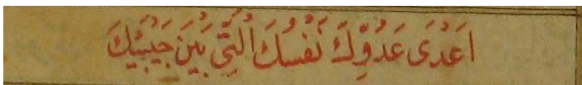 اَعْدَى عَدُوِّكَ نَفْسُكَ الَّتِى بَيْنَ جَنْبَيْكَ